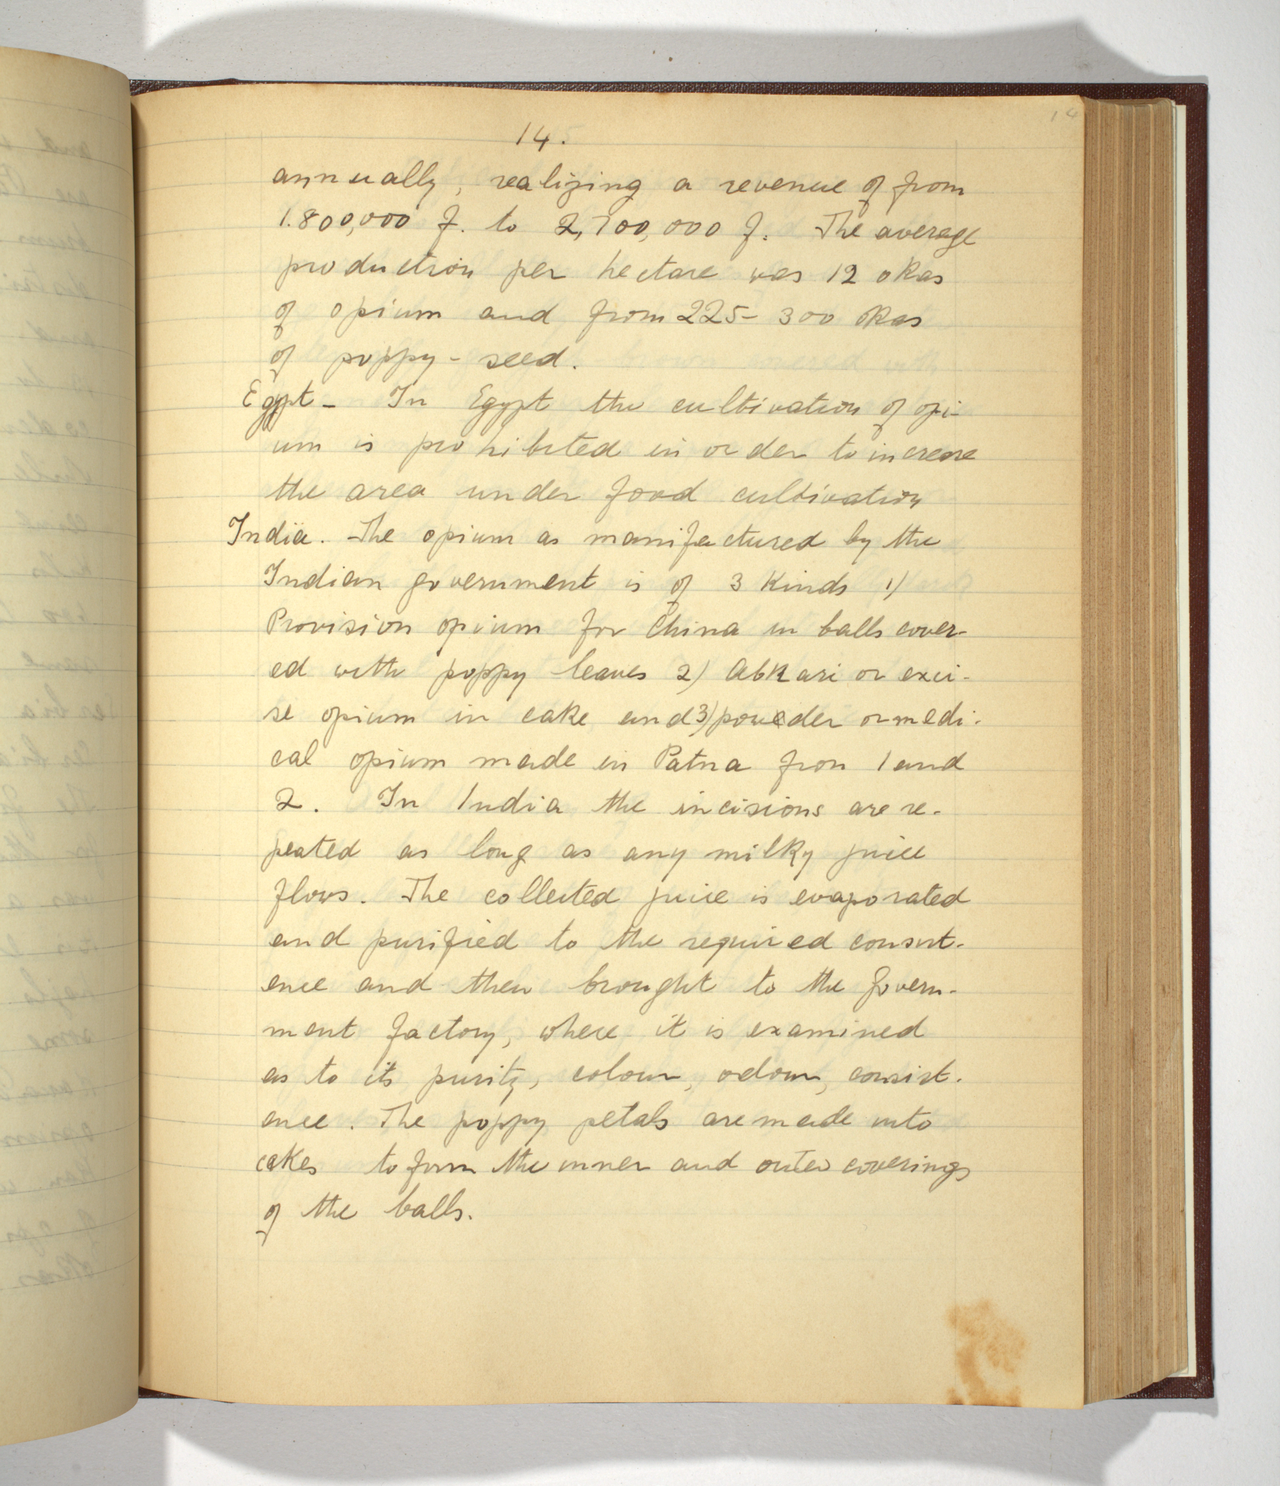 14
14.
annually, realizing a revenue of from
1.800,000 f. to 2,700,000 f. The average
production per hectare was 12 okas
of opium and from 225- 300 okas
of poppy-seed.
Egypt- In Egypt the cultivation of opi-
um is prohibited in order to increase
the area under food cultivation
India. The opium as manifactured by the
Indian government is of 3 kinds 1)
Provision opium for China in balls cover-
ed with poppy leaves 2) Abkari or exci-
se opium in cake and 3) powder or medi-
cal opium made in Patna from 1 and
2. In India the incisions are re-
peated as long as any milky juice
flows. The collected juice is evaporated
and purified to the required consist-
ence and then brought to the govern-
ment factory, where it is examined
as to its purity, colour, odour, consist-
ence. The poppy petals are made into
cakes to form the inner and outer coverings
of the balls.